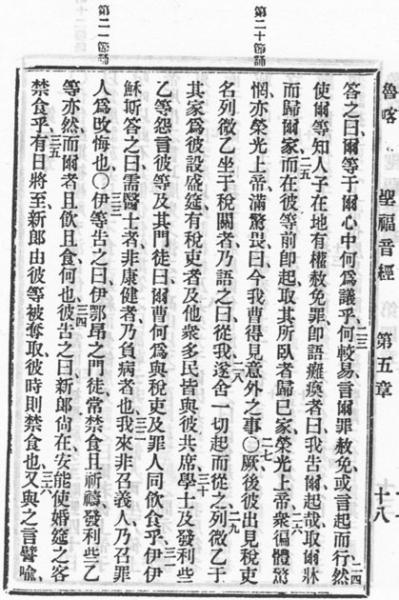 魯喀 聖福音經 第五章 十八
第二十節誦
答之曰、爾等于爾心中何為議乎、二三何較易、言爾罪赦免、或言起而行、二四然
使爾等知人子在地有權赦免罪、即語癱瘓者曰、我吿爾起哉、取爾牀
而歸爾家、二五而在彼等前卽起、取其所臥者歸已家、榮光上帝、二六衆徊體驚
惘、亦榮光上帝、滿驚畏曰、今我曹得見意外之事、〇二七厥後彼出見稅吏
名列微乙、坐于稅關者、乃語之曰、從我、二八遂舍一切、起而從之、二九列微乙于
其家為彼設盛筵、有稅吏者、及他衆多民、皆與彼共席、三十學士及發利些
乙等怨言彼等及其門徒曰、爾曹何為與稅吏及罪人同飲食乎、三一伊伊
第二一節誦
穌斯答之曰、需醫士者、非康健者、乃負病者也、三二我來非召義人、乃召罪
人為改悔也、〇三三伊等吿之曰、伊鄂昂之門徒、常禁食、且祈禱、發利些乙
等亦然、而爾者且飲且食、何也、三四彼吿之曰、新郎尙在、安能使婚筵之客
禁食乎、三五有日將至、新郎由彼等被奪取、彼時則禁食也、三六又與之言譬喻、